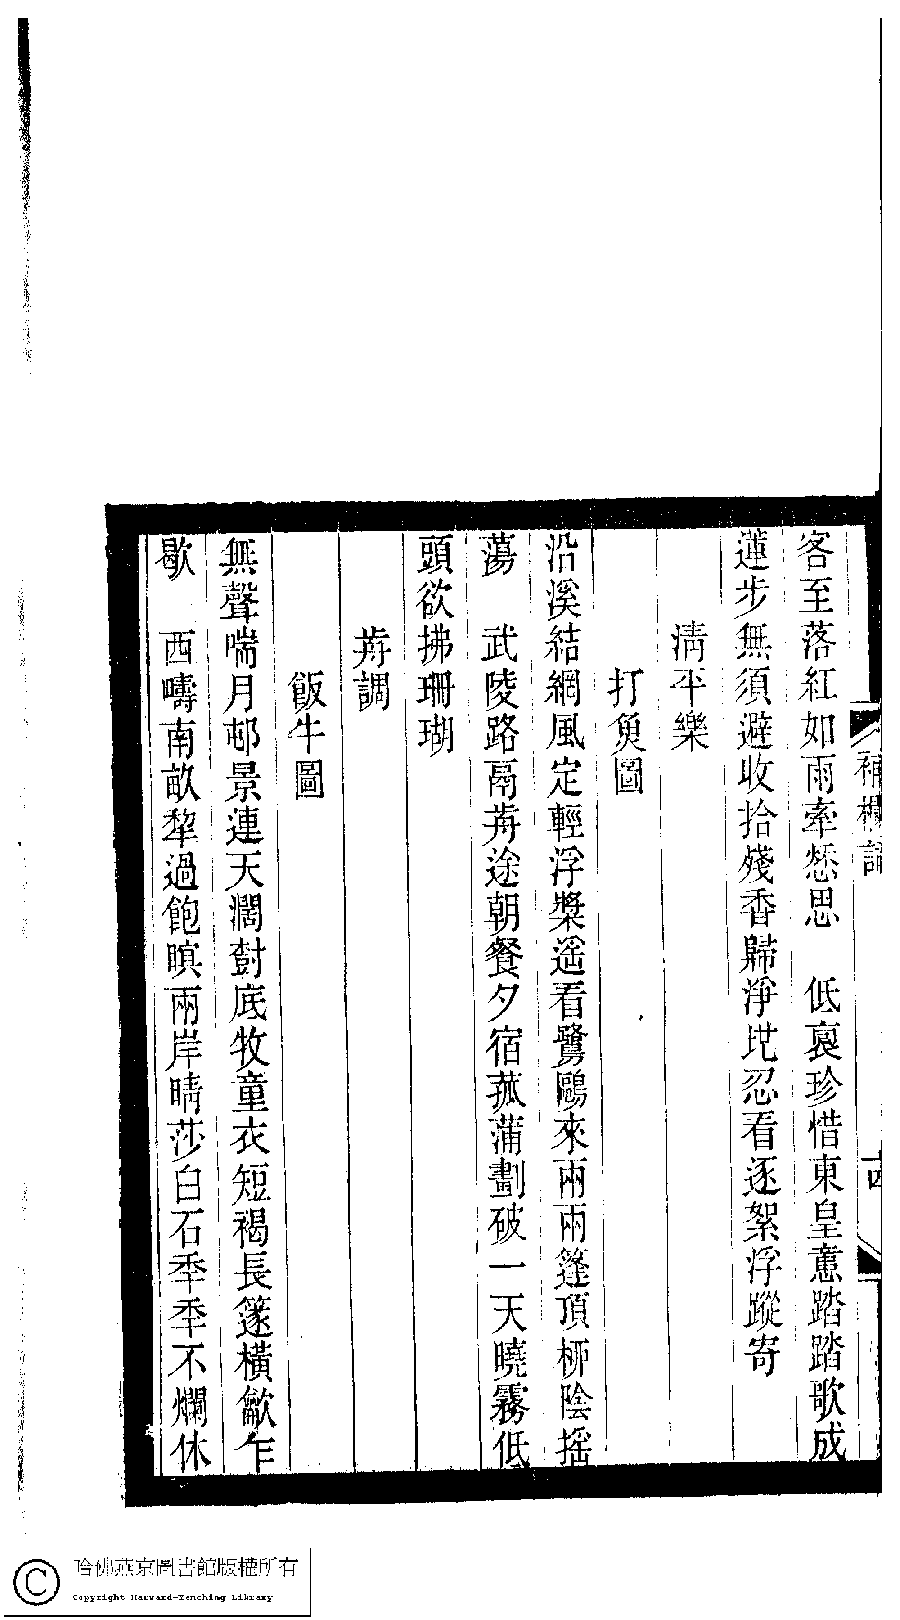 客至落紅如雨牽愁思　低裊珍惜東皇意踏踏歌成
蓮步無須避收拾殘香歸淨地忍看逐絮浮蹤寄
清平樂
打魚圖
沿溪結網風定輕浮槳遥看鷺鷗來兩兩篷頂桺陰摇
蕩　武陵路鬲歬途朝餐夕宿菰蒲劃破一天曉霧低
頭欲拂珊瑚
歬調
飯牛圖
無聲喘月邨景連天濶尌底牧童衣短褐長篴橫龡乍
歇　西疇南畝犂過飽瞑兩岸晴莎白石秊秊不爛休
補欄詞
哈佛燕京圖書館版權所有
Copyright Harvard-Yenching Library